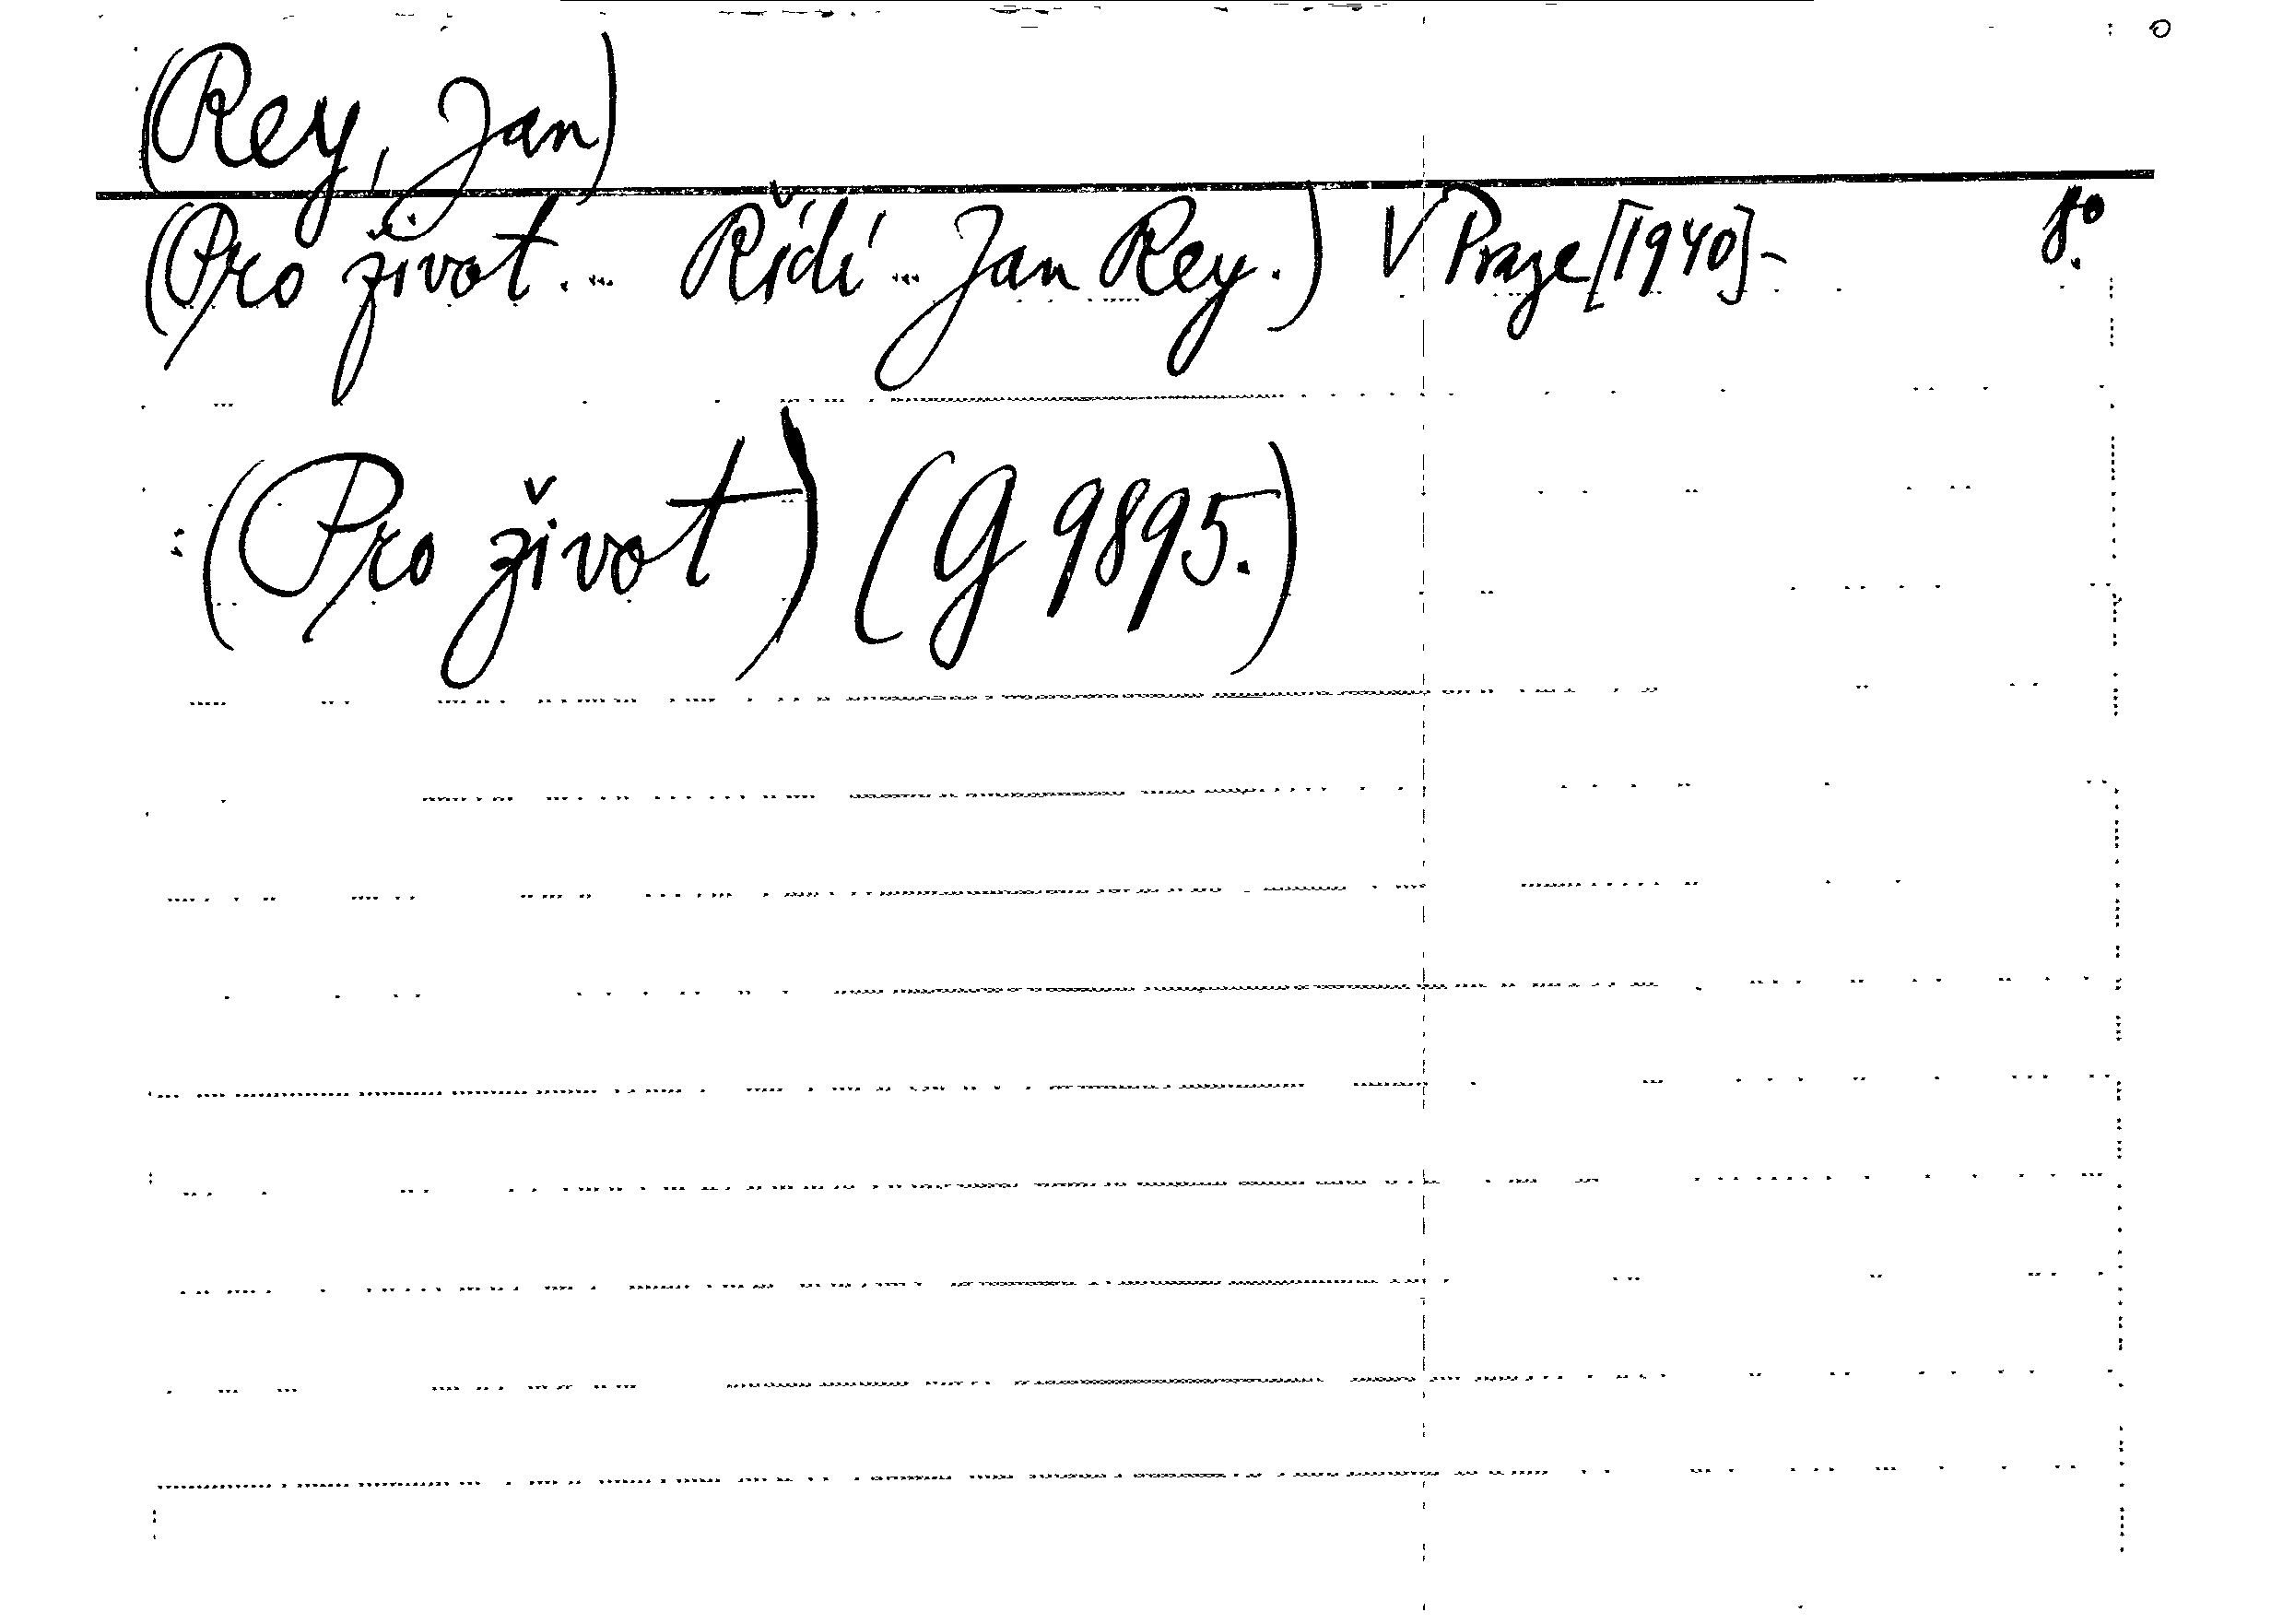 (Rey, Jan)
(Pro život. ... Řídí ... Jan Rey.) V Praze [1940]- 8°.
(Pro život) (G 9895.)